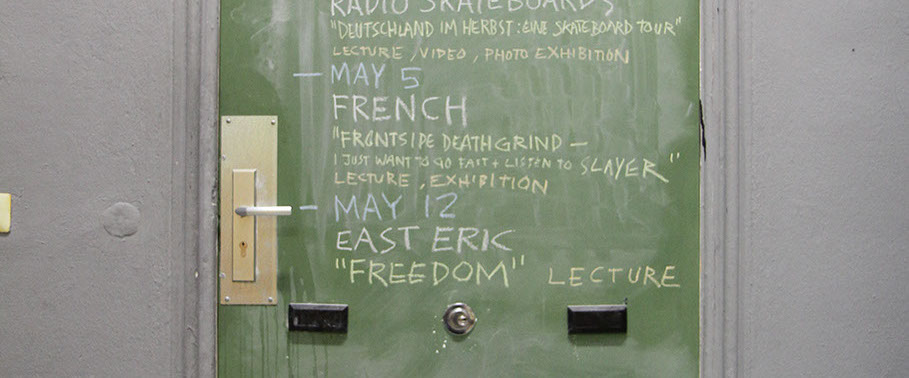 RADIO SKATEBOARDS
"DEUTSCHLAND IM HERBST: EINE SKATEBOARD TOUR"
LECTURE, VIDEO, PHOTO EXHIBITION
— MAY 5
FRENCH
"FRONTSIDE DEATHGRIND —
I JUST WANT TO GO FAST + LISTEN TO SLAYER"
LECTURE, EXHIBITION
— MAY 12
EAST ERIC
"FREEDOM" LECTURE